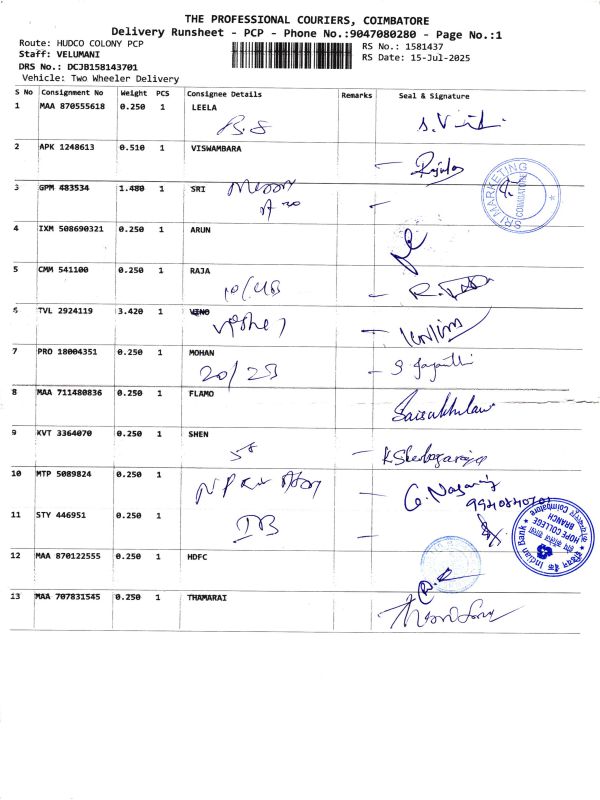 THE PROFESSIONAL COURIERS, COIMBATORE
Delivery Runsheet - PCP - Phone No.:9047080280 - Page No.:1
Route: HUDCO COLONY PCP
RS No.: 1581437
Staff: VELUMANI
RS Date: 15-Jul-2025
DRS No.: DCJB158143701
Vehicle: Two Wheeler Delivery
S No Consignment No Weight PCS Consignee Details Remarks Seal & Signature
1 MAA 870555618 0.250 1 LEELA
B.S
2 APK 1248613 0.510 1 VISWAMBARA
SRI MARKETING
COIMBATORE
3 GPM 483534 1.480 1 SRI
4 IXM 508690321 0.250 1 ARUN
5 CMM 541100 0.250 1 RAJA
6 TVL 2924119 3.420 1 VINO
7 PRO 18004351 0.250 1 MOHAN
20/23
S Jayanthi
8 MAA 711480836 0.250 1 FLAMO
9 KVT 3364070 0.250 1 SHEN
10 MTP 5089824 0.250 1
G. Nagaraj
11 STY 446951 0.250 1
IB
Indian Bank
HOPE COLLEGE
BRANCH
12 MAA 870122555 0.250 1 HDFC
13 MAA 707831545 0.250 1 THAMARAI